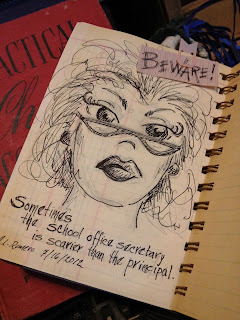 BEWARE!
PRACTICAL
Sometimes
the school office secretary
is scarier than the principal.
7/16/2012